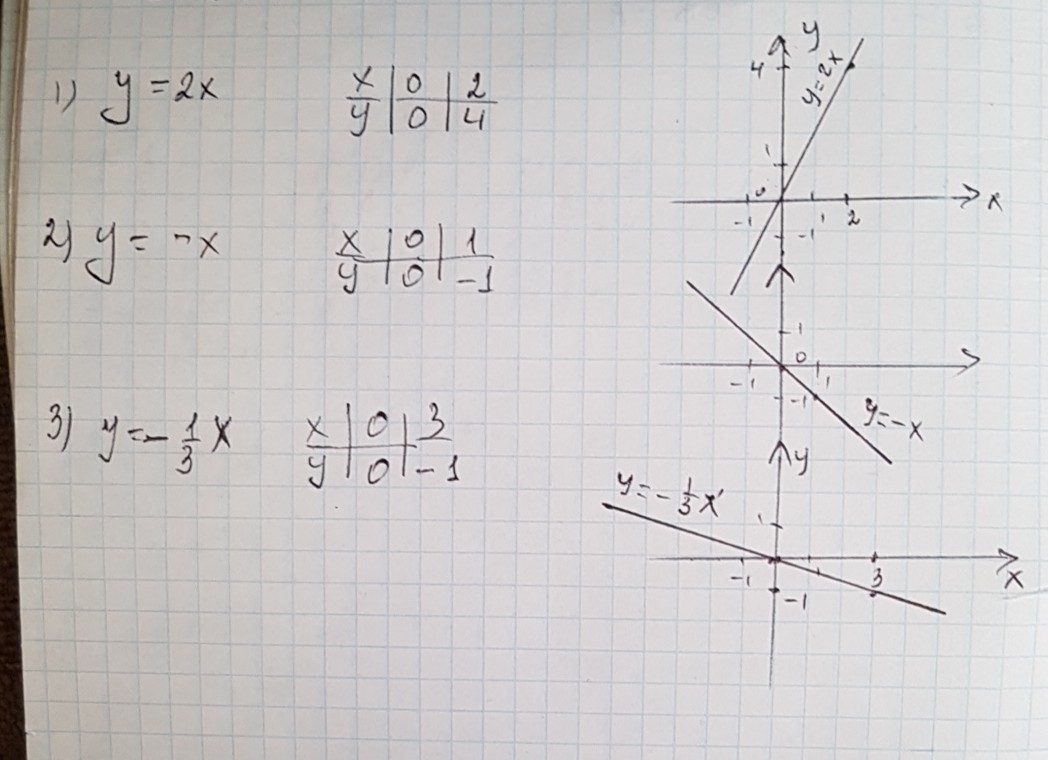 1) y = 2x
x | 0 | 2
y | 0 | 4
y
4
y=2x
1
0
-1 1 2 x
-1
2) y = -x
x | 0 | 1
y | 0 | -1
1
0
-1 1
-1
y=-x
3) y = - 1/3 x
x | 0 | 3
y | 0 | -1
y
y=- 1/3 x
1
-1 3 x
-1